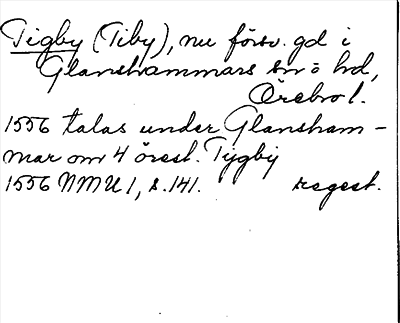 Tigby (Tiby), nu försv. gd i
Glanshammars sn o hd,
Örebro l.
1556 talas under Glansham-
mar om 4 örest. Tygby
1556 NMU 1, s. 141. regest.